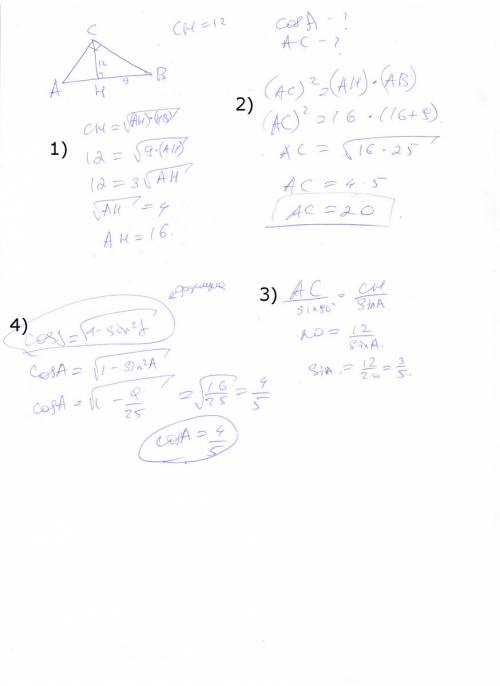 C
12
A
H
9
B
CH = 12
cos A - ?
AC - ?
1)
CH = √(AH)·(HB)
12 = √9·(AH)
12 = 3√AH
√AH = 4
AH = 16.
2)
(AC)² = (AH)·(AB)
(AC)² = 16·(16+9)
AC = √16·25
AC = 4·5
AC = 20.
3)
AC/sin90° = CH/sinA
20 = 12/sinA.
sin. = 12/20 = 3/5.
4)
формула
cosγ = √1-sin²γ
cosA = √1-sin²A
cosA = √1 - 9/25 = √16/25 = 4/5
cosA = 4/5